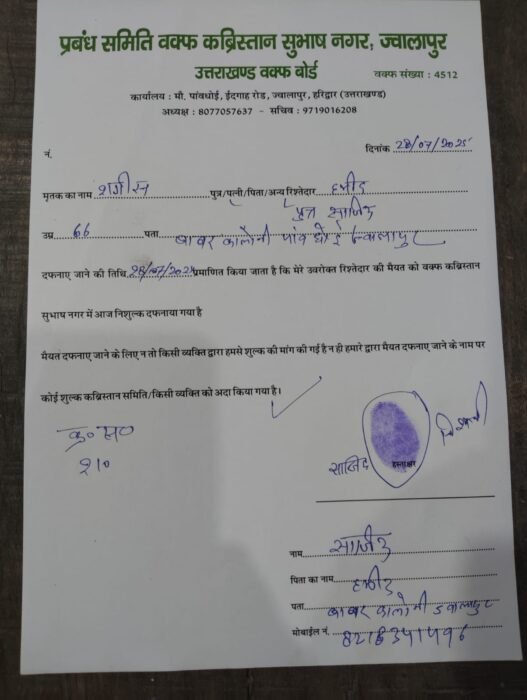 प्रबंध समिति वक्फ कब्रिस्तान सुभाष नगर, ज्वालापुर
उत्तराखण्ड वक्फ बोर्ड
वक्फ संख्या : 4512
कार्यालय : मौ. पांवधोई, ईदगाह रोड, ज्वालापुर, हरिद्वार (उत्तराखण्ड)
अध्यक्ष : 8077057637 - सचिव : 9719016208
नं.
दिनांक 28/07/2025
मृतक का नाम पुत्र/पत्नी/पिता/अन्य रिश्तेदार हमीद
पुत्र साजिद
उम्र 66 पता बाबर कालोनी पांव धोई ज्वालापुर
दफनाए जाने की तिथि 28/07/2025 प्रमाणित किया जाता है कि मेरे उवरोक्त रिश्तेदार की मैयत को वक्फ कब्रिस्तान
सुभाष नगर में आज निशुल्क दफनाया गया है
मैयत दफनाए जाने के लिए न तो किसी व्यक्ति द्वारा हमसे शुल्क की मांग की गई है न ही हमारे द्वारा मैयत दफनाए जाने के नाम पर
कोई शुल्क कब्रिस्तान समिति/किसी व्यक्ति को अदा किया गया है।
क्र० स०
२१०
साजिद हस्ताक्षर निशानी
नाम साजिद
पिता का नाम हमीद
पता बाबर कालोनी ज्वालापुर
मोबाईल नं.